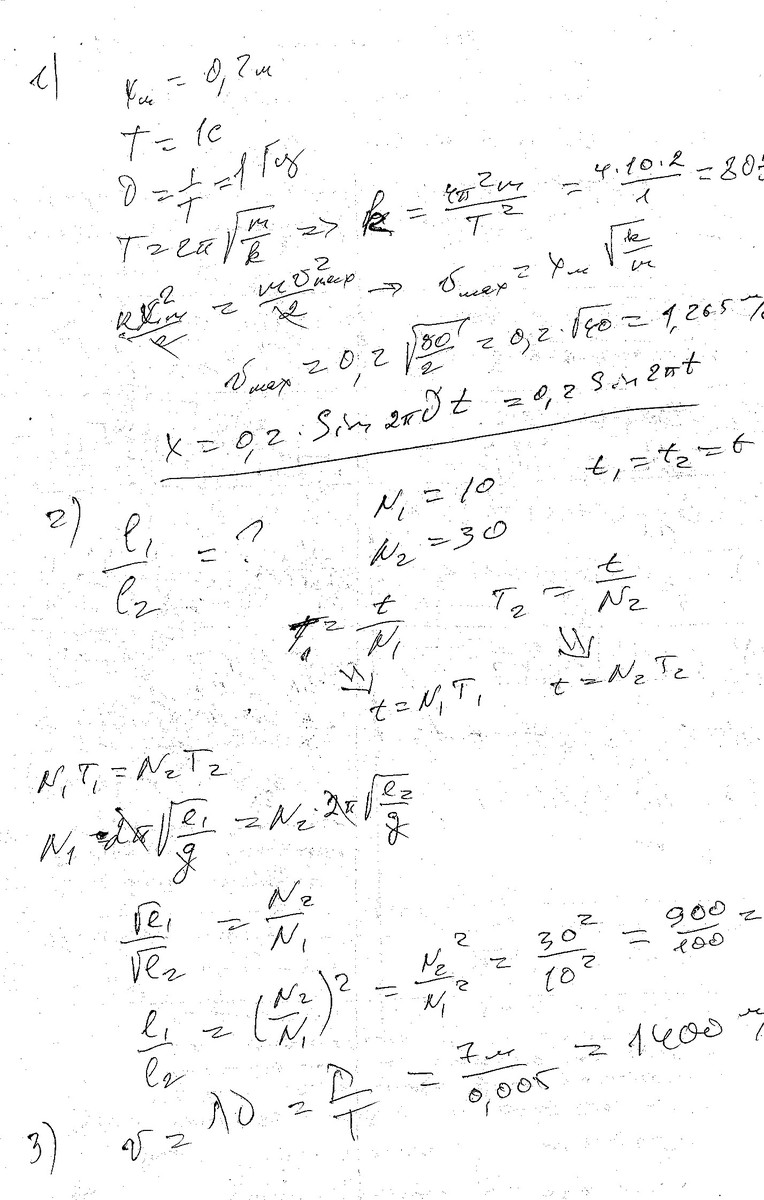 1)
xм = 0,2м
T = 1c
ν = 1/T = 1 Гц
T = 2π√(m/k) => k = 4π²m/T² = 4·10·2/1 = 80
kxм²/2 = mυ²max/2 → υmax = xм √(k/m)
υmax = 0,2 √(80/2) = 0,2·√40 = 1,265 м/
x = 0,2 · Sin 2πνt = 0,2 Sin 2πt
2) l₁/l₂ = ? N₁ = 10 t₁ = t₂ = t
N₂ = 30
T₁ = t/N₁ T₂ = t/N₂
⇓ ⇓
t = N₁T₁ t = N₂T₂
N₁T₁ = N₂T₂
N₁ · 2π√(l₁/g) = N₂ · 2π√(l₂/g)
√l₁/√l₂ = N₂/N₁
l₁/l₂ = (N₂/N₁)² = N₂²/N₁² = 30²/10² = 900/100 =
3) υ = λν = λ/T = 7м/0,005 = 1400 м/